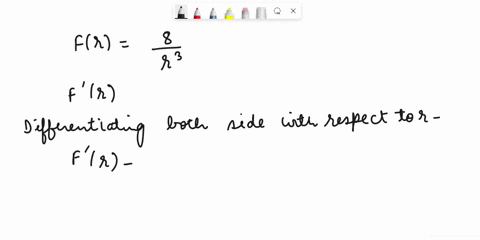 F(r) = 8/r³
F'(r)
Differentiating both side with respect to r -
F'(r) -